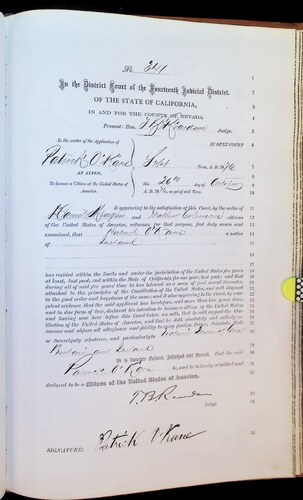 No 341
In the District Court of the Fourteenth Judicial District.
OF THE STATE OF CALIFORNIA,
IN AND FOR THE COUNTY OF NEVADA.
Present: Hon. Judge.
In the matter of the Application of IN OPEN COURT
Patrick O'Kane Sept Term, A. D. 1876
AN ALIEN, this 26th day of October
To become a Citizen of the United States of America. A. D. 1876
It appearing to the satisfaction of this Court, by the oaths of
and citizens
of the United States of America, witnesses for that purpose, first duly sworn and
examined, that Patrick O'Kane a native
of Ireland
has resided within the limits and under the jurisdiction of the United States five years
at least, last past, and within the State of California for one year, last past; and that
during all of said five years' time he has behaved as a man of good moral character,
attached to the principles of the Constitution of the United States, and well disposed
to the good order and happiness of the same; and it also appearing to the Court, by com-
petent evidence, that the said applicant has heretofore, and more than two years since,
and in due form of law, declared his intention to become a citizen of the United States
and having now here before this Court taken an oath, that he will support the Con-
stitution of the United States of America, and that he doth absolutely and entirely re-
nounce and abjure all allegiance and fidelity to every foreign Prince, Potentate, State
or Sovereignty whatever, and particularly
Britain and Ireland
It is therefore Ordered, Adjudged and Decreed, That the said
Patrick O'Kane be, and he is hereby admitted and
declared to be a Citizen of the United States of America.
Judge.
SIGNATURE: Patrick O'Kane